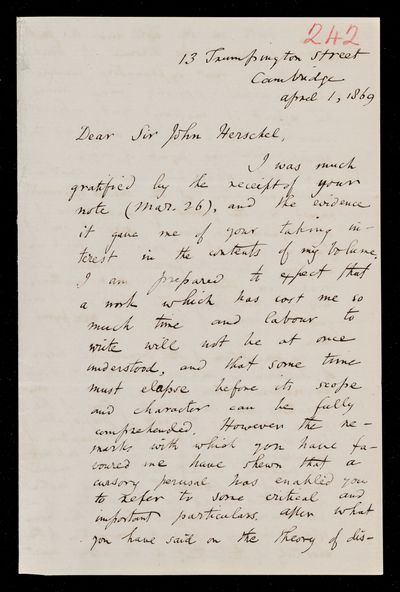 242
13 Trumpington Street
Cambridge
April 1, 1869
Dear Sir John Herschel,
I was much
gratified by the receipt of your
note (Mar. 26), and the evidence
it gave me of your taking in-
terest in the contents of my volume.
I am prepared to expect that
a work which has cost me so
much time and labour to
write will not be at once
understood, and that some time
must elapse before its scope
and character can be fully
comprehended. However the re-
marks with which you have fa-
voured me have shewn that a
cursory perusal has enabled you
to refer to some critical and
important particulars. After what
you have said on the Theory of dis-